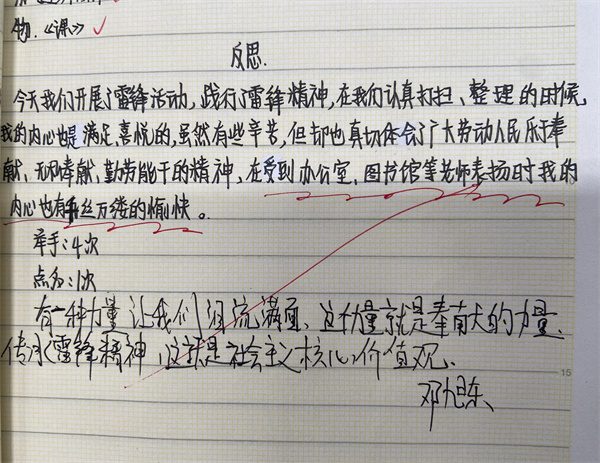 物.《课》
反思.
今天我们开展了雷锋活动,践行了雷锋精神,在我们认真打扫、整理的时候,
我的内心也是满足、喜悦的,虽然有些辛苦,但却也真切体会了广大劳动人民乐于奉
献、无私奉献、勤劳能干的精神,在受到办公室、图书馆等老师表扬时我的
内心也有千丝万缕的愉快。
举手:4次
点名:1次
有一种力量让我们泪流满面、这力量就是奉献的力量、
传承雷锋精神,这就是社会主义核心价值观、
邓旭东
15